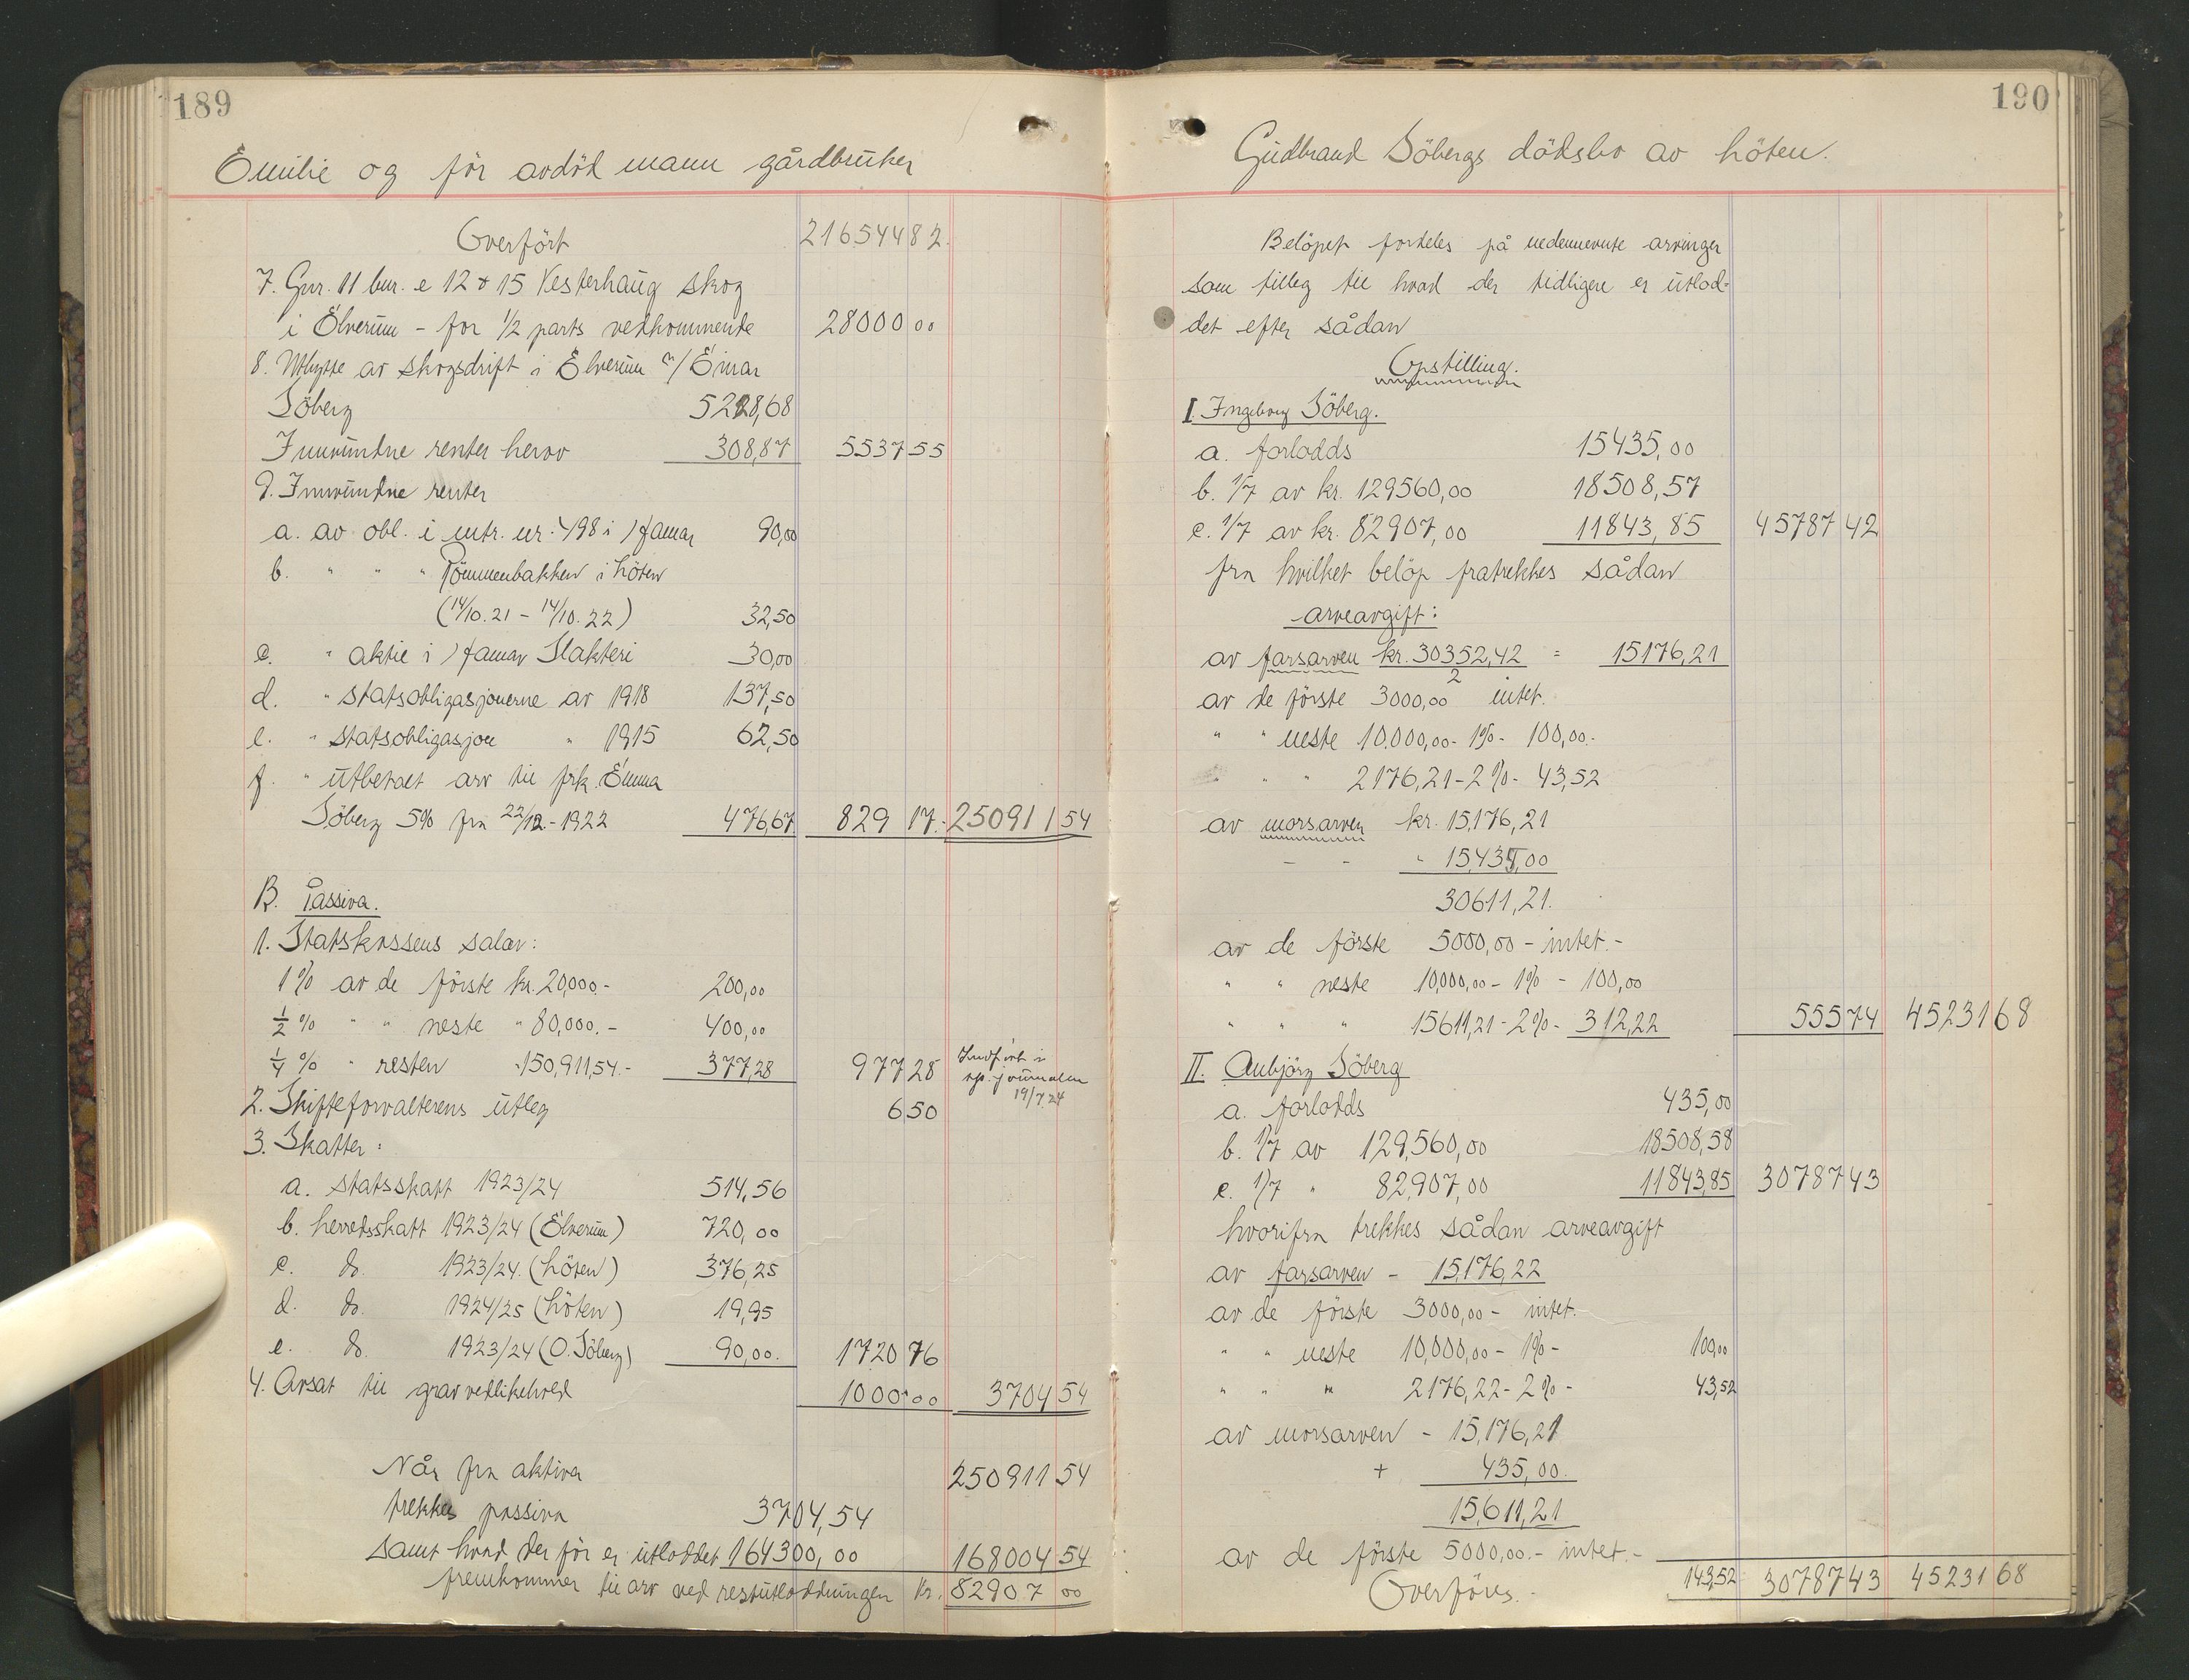 189
Emilie og før avdød mann gårdbruker
Overført 216544 82
7. Gnr. 11 bnr. e 12 & 15 Vesterhaug skog
i Elverum - for 1/2 parts vedkommende 28000 00
8. Utbytte av skogsdrift i Elverum m/ Einar
Söberg 5228,68
Innvundne renter herav 308,87 5537 55
9. Innvundne renter
a. av obl. i mtr. nr. 498 i Hamar 90,00
b. " " " Tömmenbakken i Löten
(14/10.21 - 14/10.22) 32,50
c. " aktie i Hamar Slakteri 30,00
d. " statsobligasjonerne av 1918 137,50
e. " statsobligasjon " 1915 62,50
f. " utbetalt arv til frk. Emma
Söberg 5% fra 22/12.-1922 476,67 829 17.- 250911 54
B. Passiva.
1. Statskassens salær:
1% av de første kr. 20,000.- 200,00
1/2 % " " neste " 80,000.- 400,00
1/4 % " resten -150,911,54.- 377,28 977 28
Indført i
sp. journalen
19/7 24
2. Skifteforvalterens utleg 6 50
3. Skatter:
a. statsskatt 1923/24 514,56
b. herredsskatt 1923/24 (Elverum) 720,00
c. do. 1923/24. (Löten) 376,25
d. do. 1924/25 (Löten) 19,95
e. do. 1923/24 (O. Söberg) 90,00. 1720 76
4. Avsat til gravvedlikehold 1000 00 3704 54
Når fra aktiva 250911 54
trekkes passiva 3704,54
samt hvad der før er utloddet 164300,00 168004 54
fremkommer til arv ved restutlodningen kr. 82907 00
190
Gudbrand Söbergs dödsbo av Löten.
Belöpet fordeles på nedennevnte arvinger
som tilleg til hvad der tidligere er utlod-
det efter sådan
Opstilling.
I. Ingeborg Söberg.
a. forlodds 15435,00
b. 1/7 av kr. 129560,00 18508,57
c. 1/7 av kr. 82907,00 11843,85 45787 42
fra hvilket belöp fratrekkes sådan
arveavgift:
av farsarven kr. 30352,42 = 15176,21
2
av de förste 3000,00 intet.
" " neste 10.000,00- 1%- 100,00.-
" " " 2176,21-2%- 43,52
av morsarven kr. 15,176,21
- - " 15,435,00
30611,21.
av de förste 5000,00 - intet.-
" " neste 10,000,00 - 1% - 100,00
" " " 15611,21-2%- 312,22 555 74 45231 68
II. Aubjörg Söberg
a. forlodds 435,00
b. 1/7 av 129,560,00 18508,58
c. 1/7 " 82,907,00 11843,85 30787 43
hvorifra trekkes sådan arveavgift
av farsarven - 15,176,22
av de förste 3000,00 - intet.
" " neste 10,000,00 - 1% - 100,00
" " " 2176,22- 2%- 43,52
av morsarven - 15,176,21
+ 435,00.
15,611,21
av de förste 5000,00.- intet.-
Overføres. 143,52 30787 43 45231 68